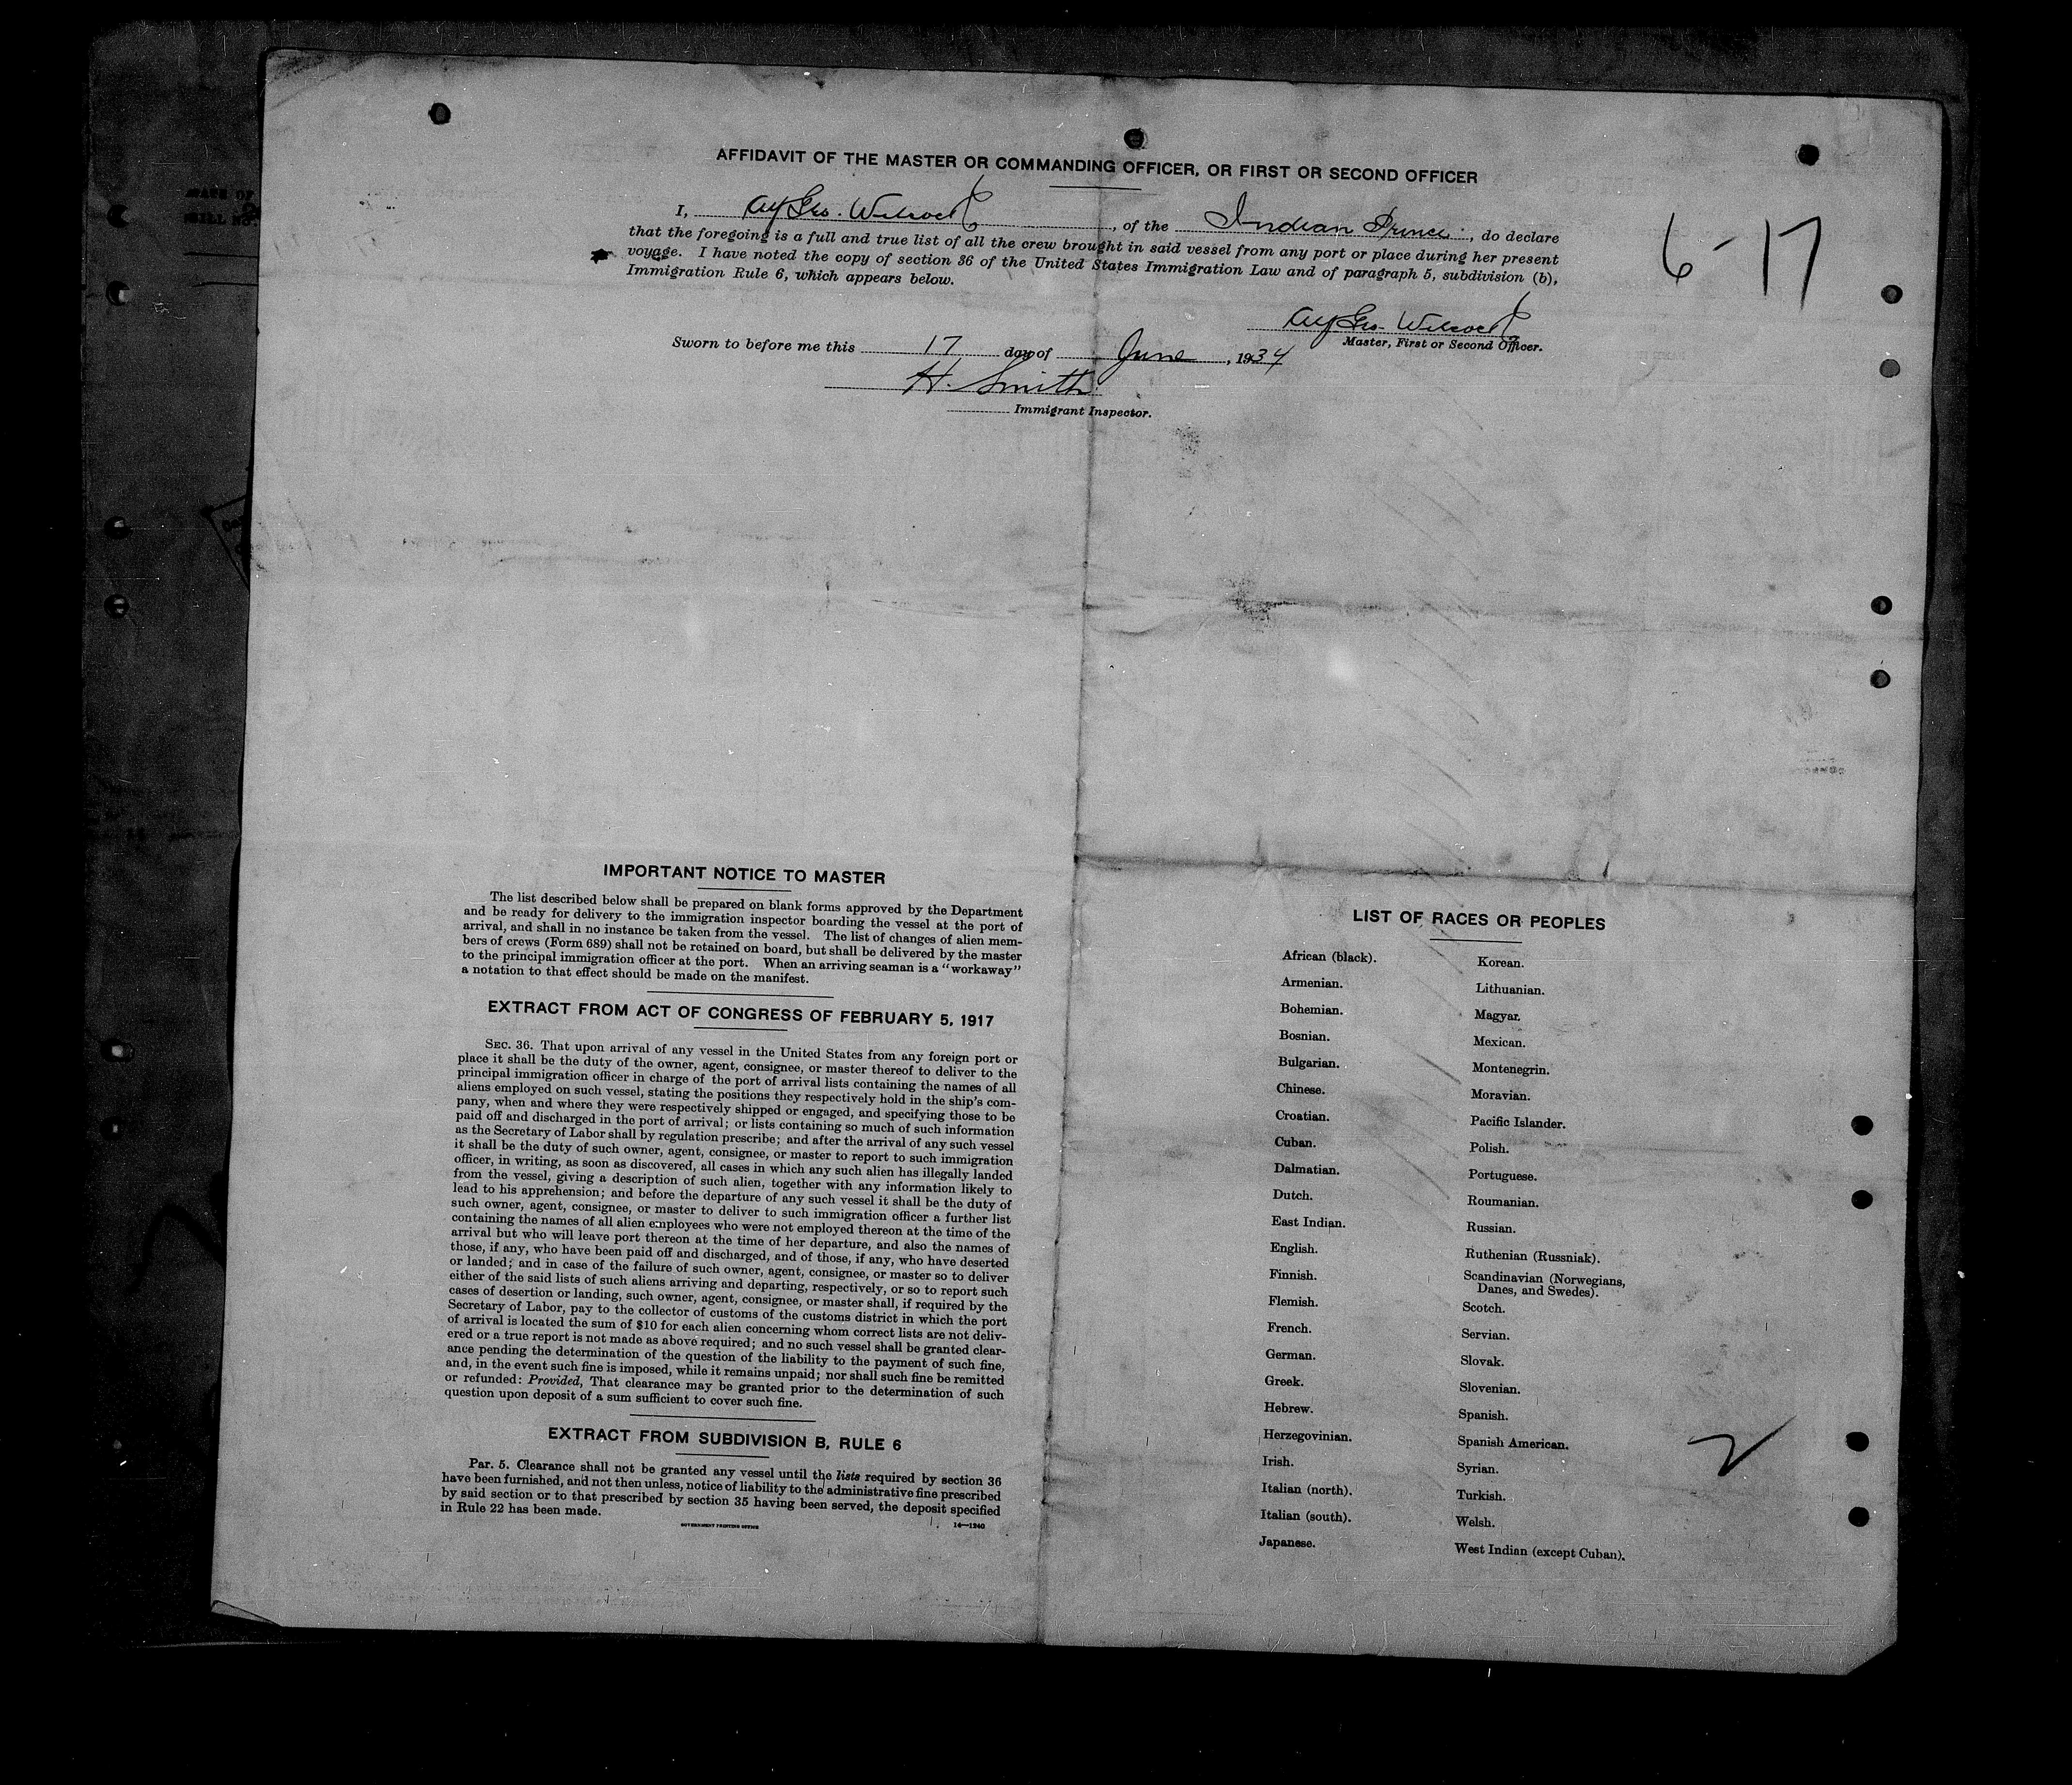 AFFIDAVIT OF THE MASTER OR COMMANDING OFFICER, OR FIRST OR SECOND OFFICER
I, Alf Geo. Wilcock, of the Indian Prince, do declare
that the foregoing is a full and true list of all the crew brought in said vessel from any port or place during her present
voyage. I have noted the copy of section 36 of the United States Immigration Law and of paragraph 5, subdivision (b),
Immigration Rule 6, which appears below.
6-17
Alf Geo. Wilcock
Master, First or Second Officer.
Sworn to before me this 17 day of June, 1934
H. Smith
Immigrant Inspector.
IMPORTANT NOTICE TO MASTER
The list described below shall be prepared on blank forms approved by the Department
and be ready for delivery to the immigration inspector boarding the vessel at the port of
arrival, and shall in no instance be taken from the vessel. The list of changes of alien mem-
bers of crews (Form 689) shall not be retained on board, but shall be delivered by the master
to the principal immigration officer at the port. When an arriving seaman is a "workaway"
a notation to that effect should be made on the manifest.
EXTRACT FROM ACT OF CONGRESS OF FEBRUARY 5, 1917
SEC. 36. That upon arrival of any vessel in the United States from any foreign port or
place it shall be the duty of the owner, agent, consignee, or master thereof to deliver to the
principal immigration officer in charge of the port of arrival lists containing the names of all
aliens employed on such vessel, stating the positions they respectively hold in the ship's com-
pany, when and where they were respectively shipped or engaged, and specifying those to be
paid off and discharged in the port of arrival; or lists containing so much of such information
as the Secretary of Labor shall by regulation prescribe; and after the arrival of any such vessel
it shall be the duty of such owner, agent, consignee, or master to report to such immigration
officer, in writing, as soon as discovered, all cases in which any such alien has illegally landed
from the vessel, giving a description of such alien, together with any information likely to
lead to his apprehension; and before the departure of any such vessel it shall be the duty of
such owner, agent, consignee, or master to deliver to such immigration officer a further list
containing the names of all alien employees who were not employed thereon at the time of the
arrival but who will leave port thereon at the time of her departure, and also the names of
those, if any, who have been paid off and discharged, and of those, if any, who have deserted
or landed; and in case of the failure of such owner, agent, consignee, or master so to deliver
either of the said lists of such aliens arriving and departing, respectively, or so to report such
cases of desertion or landing, such owner, agent, consignee, or master shall, if required by the
Secretary of Labor, pay to the collector of customs of the customs district in which the port
of arrival is located the sum of $10 for each alien concerning whom correct lists are not deliv-
ered or a true report is not made as above required; and no such vessel shall be granted clear-
ance pending the determination of the question of the liability to the payment of such fine,
and, in the event such fine is imposed, while it remains unpaid; nor shall such fine be remitted
or refunded: Provided, That clearance may be granted prior to the determination of such
question upon deposit of a sum sufficient to cover such fine.
EXTRACT FROM SUBDIVISION B, RULE 6
Par. 5. Clearance shall not be granted any vessel until the lists required by section 36
have been furnished, and not then unless, notice of liability to the administrative fine prescribed
by said section or to that prescribed by section 35 having been served, the deposit specified
in Rule 22 has been made.
GOVERNMENT PRINTING OFFICE 14—1240
LIST OF RACES OR PEOPLES
African (black).
Armenian.
Bohemian.
Bosnian.
Bulgarian.
Chinese.
Croatian.
Cuban.
Dalmatian.
Dutch.
East Indian.
English.
Finnish.
Flemish.
French.
German.
Greek.
Hebrew.
Herzegovinian.
Irish.
Italian (north).
Italian (south).
Japanese.
Korean.
Lithuanian.
Magyar.
Mexican.
Montenegrin.
Moravian.
Pacific Islander.
Polish.
Portuguese.
Roumanian.
Russian.
Ruthenian (Russniak).
Scandinavian (Norwegians,
Danes, and Swedes).
Scotch.
Servian.
Slovak.
Slovenian.
Spanish.
Spanish American.
Syrian.
Turkish.
Welsh.
West Indian (except Cuban).
2